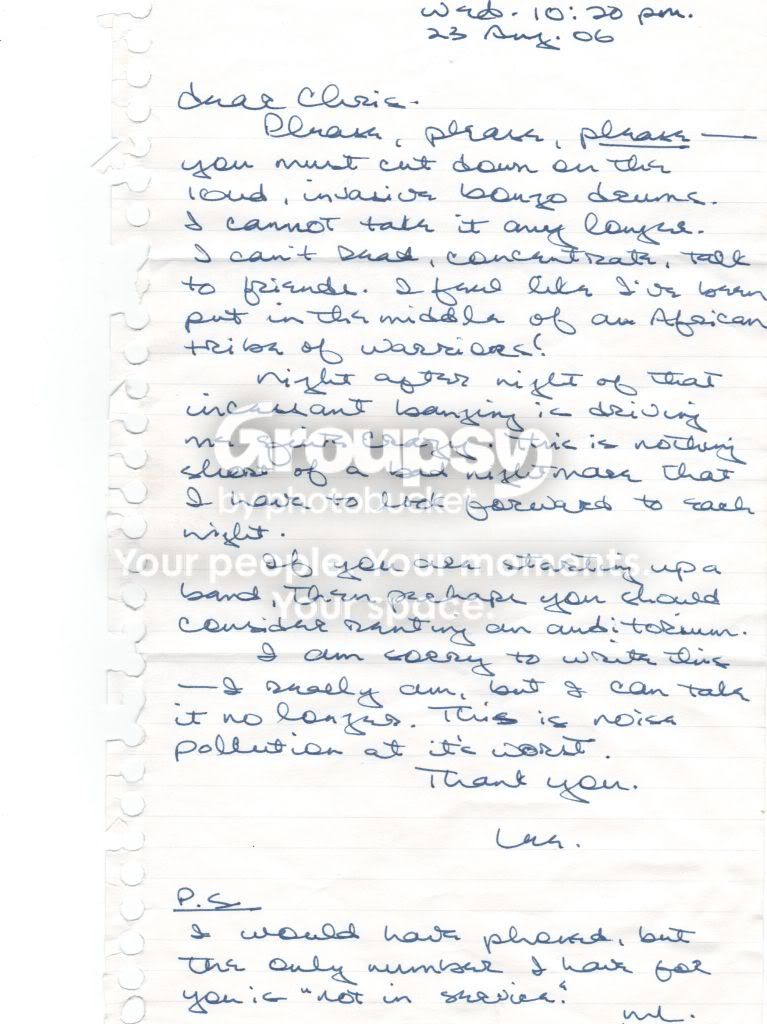 Wed. 10:20 pm.
23 Aug. 06
Dear Chris.
Please, please, please —
you must cut down on the
loud, invasive bongo drums.
I cannot take it any longer.
I can't read, concentrate, talk
to friends. I feel like I've been
put in the middle of an African
tribe of warriors!
Night after night of that
incessant banging is driving
me quite crazy. This is nothing
short of a bad nightmare that
I have to look forward to each
night.
If you are starting up a
band, then perhaps you should
consider renting an auditorium.
I am sorry to write this
— I really am, but I can take
it no longer. This is noise
pollution at it's worst.
Thank you.
Lee.
P.S.
I would have phoned, but
the only number I have for
you is "not in service."
ML.
Groupsy
by photobucket
Your people. Your moments.
Your space.